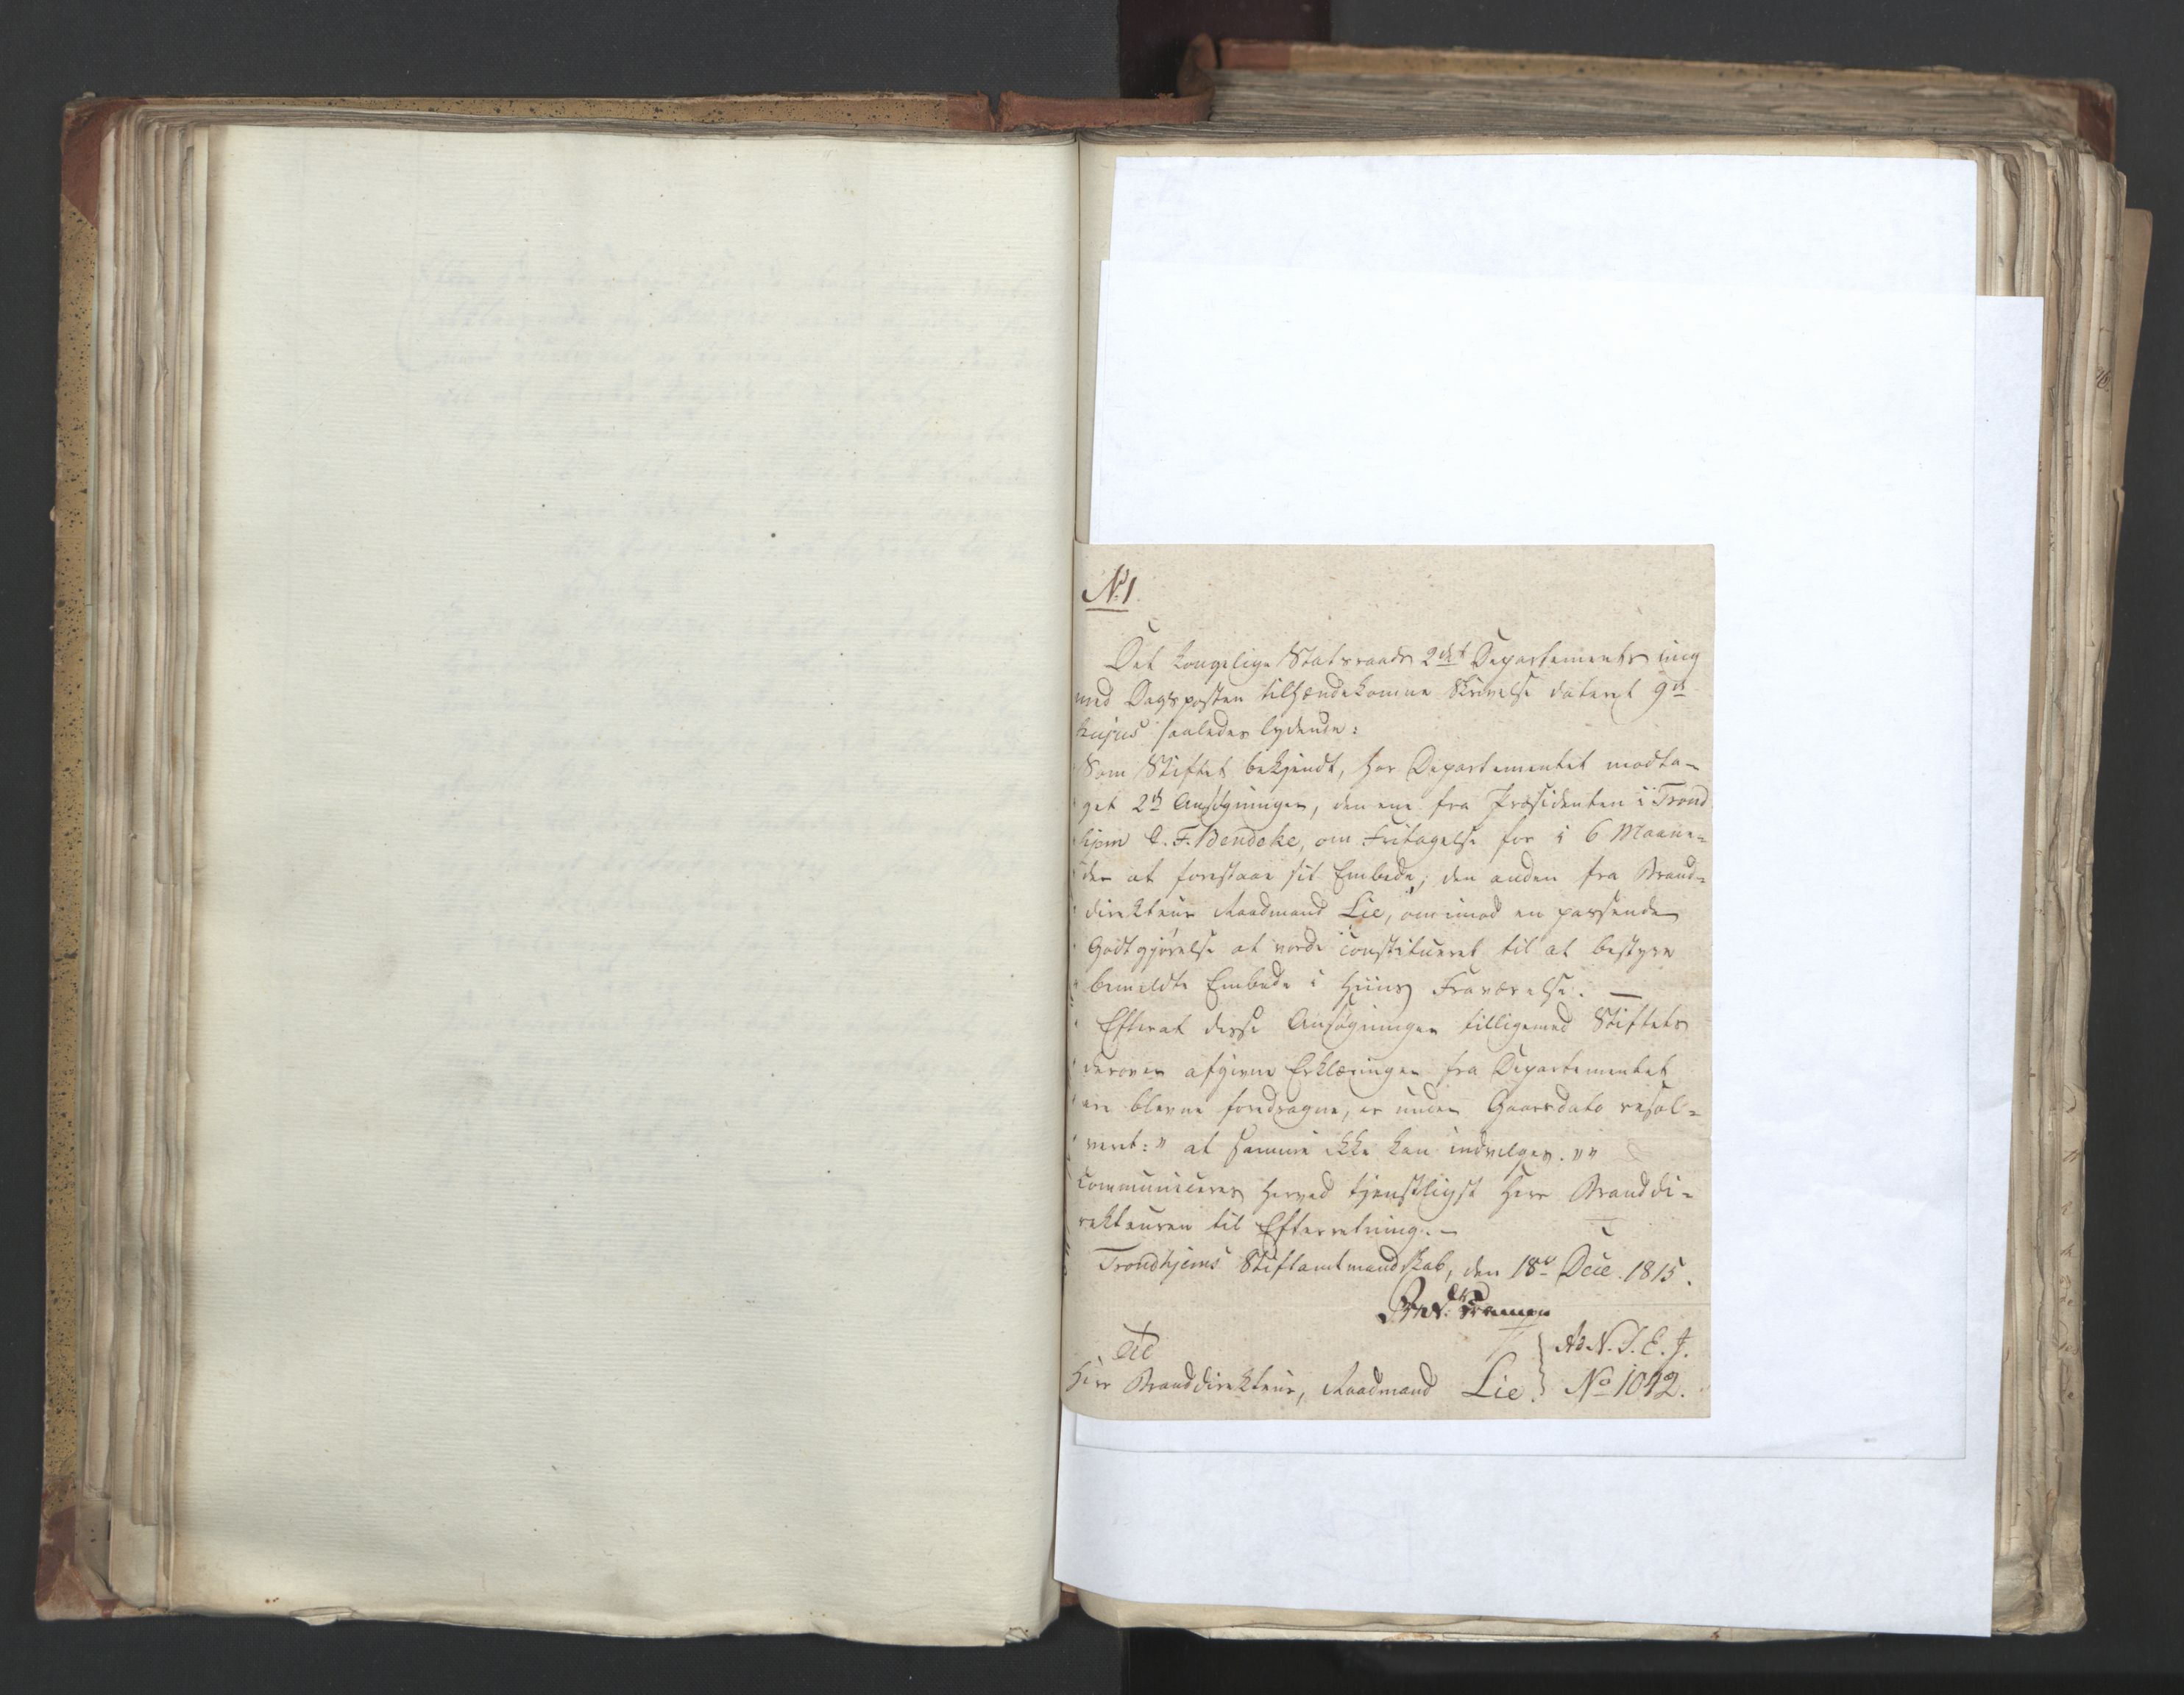 No 1.
Det kongelige Statsraads 2det Departements mig
med Dagsposten tilhændekomne Skrivelse dateret 9de
hujus saaledes lydende:
"Som Stiftet bekjendt, har Departementet modta-
" get 2de Ansøgninger, den ene fra Præsidenten i Trond
" hjem C. F. Bendeke, om Fritagelse for i 6 Maane-
" der at forestaae sit Embede; den anden fra Brand-
" direkteur Raadmand Lie, om imod en passende
" Godtgjørelse at vorde constitueret til at bestyre
" bemeldte Embede i Hiins Fraværelse. —
" Efterat disse Ansøgninger tilligemed Stiftets
" derover afgivne Erklæringer fra Departementet
" ere blevne foredragne, er under Gaarsdato resol-
" veret: " at samme ikke kan indvilges.""
communiceres herved tjenstligst Herr Branddi-
rekteuren til Efterretning. —
Trondhjems Stiftamtmandskab, den 18de Dece. 1815.
ad
Herr Branddirekteur, Raadmand Lie.
No 1042.